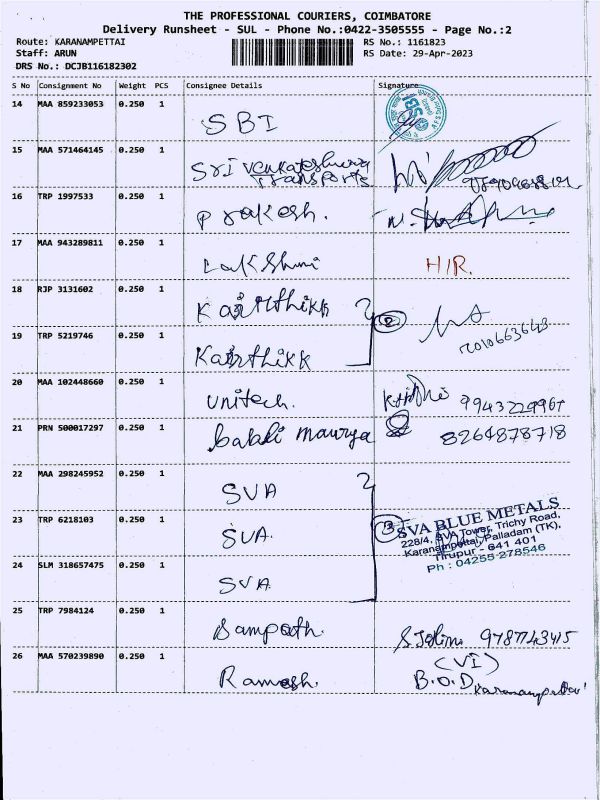 THE PROFESSIONAL COURIERS, COIMBATORE
Delivery Runsheet - SUL - Phone No.:0422-3505555 - Page No.:2
Route: KARANAMPETTAI
RS No.: 1161823
Staff: ARUN
RS Date: 29-Apr-2023
DRS No.: DCJB116182302
S No Consignment No Weight PCS Consignee Details Signature
14 MAA 859233053 0.250 1 SBI
15 MAA 571464145 0.250 1 Sri Venkateshwra
Transports
16 TRP 1997533 0.250 1 Prakesh.
17 MAA 943289811 0.250 1 Lakshmi H/R.
18 RJP 3131602 0.250 1 Kaarthikk
2
19 TRP 5219746 0.250 1 Kaarthikk
20 MAA 102448660 0.250 1 Unitech. 9943229967
21 PRN 500017297 0.250 1 balaki maurya 8264878718
22 MAA 298245952 0.250 1 SVA
23 TRP 6218103 0.250 1 SVA.
3
SVA BLUE METALS
228/4, SVA Tower, Trichy Road,
Karanampettai, Palladam (TK),
Tirupur - 641 401
Ph : 04255 278546
24 SLM 318657475 0.250 1 SVA
25 TRP 7984124 0.250 1 Sampath.
26 MAA 570239890 0.250 1 Ramesh. (VI)
B.O.D Karanampettai